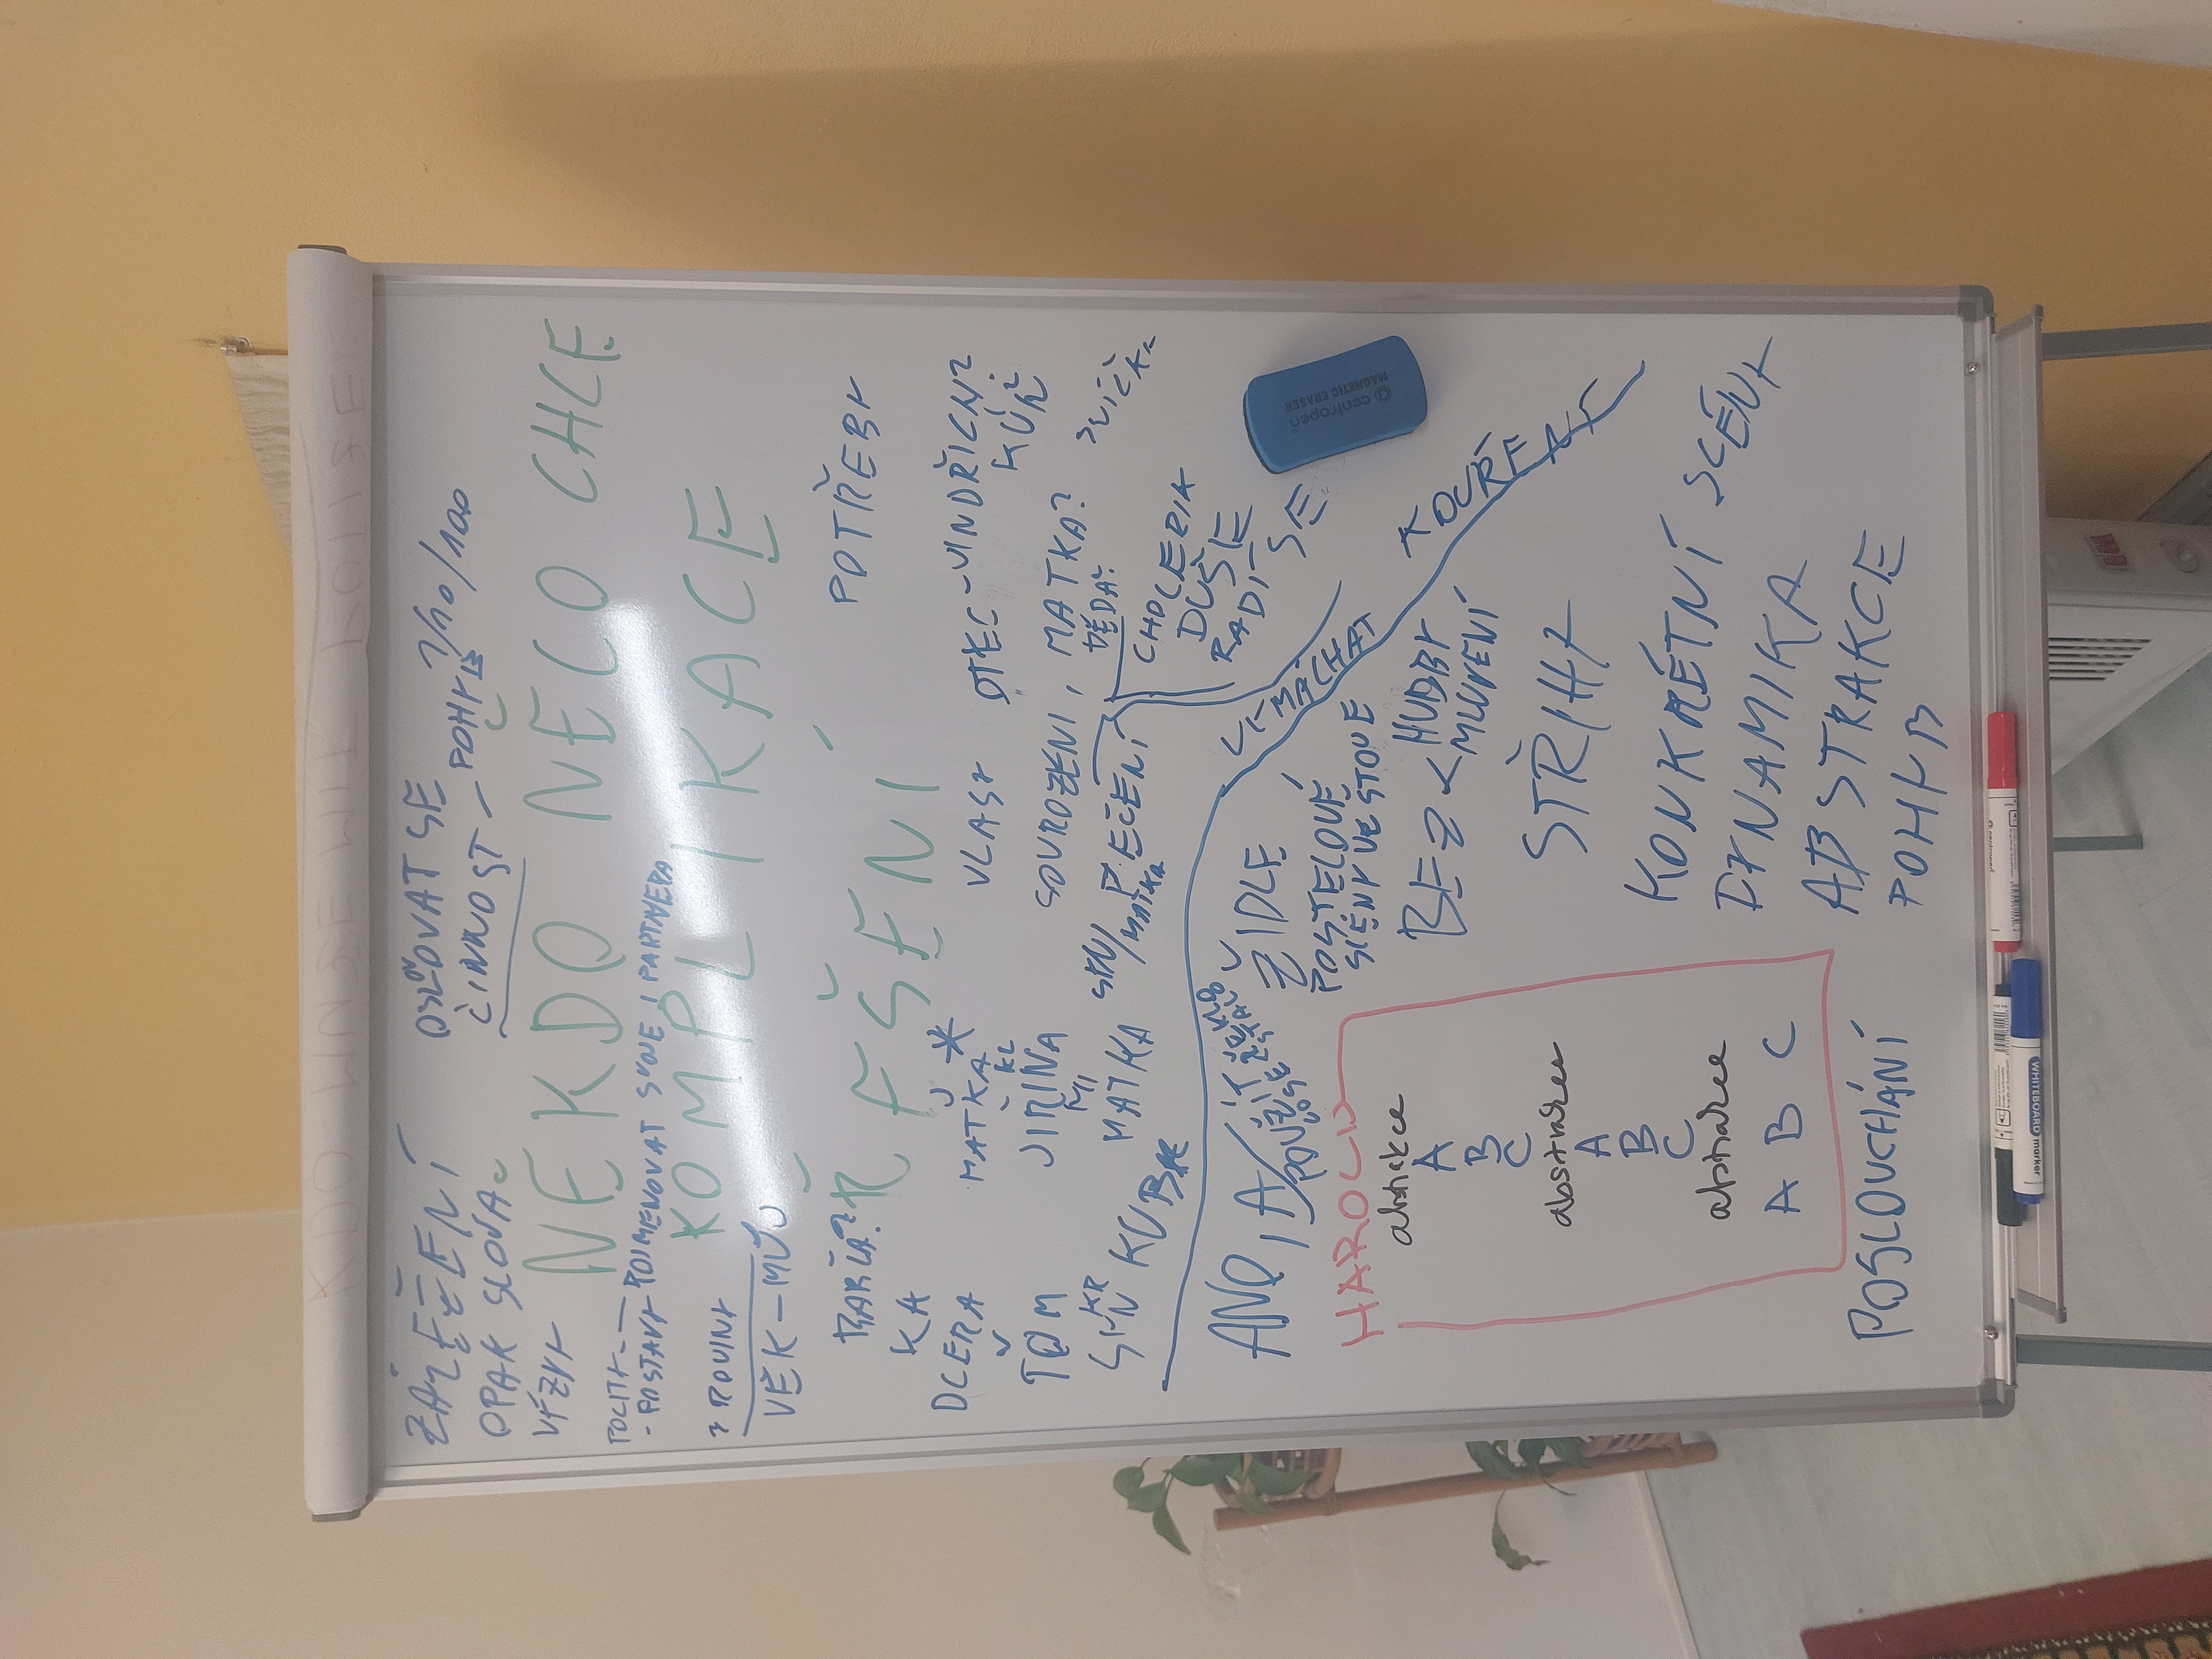 KDO
ZÁLEŽENÍ
OPAK SLOVA
VĚZY
OSLOVOVAT SE
ČINNOST - POHYB 1/10/100
NĚKDO NĚCO CHCE
POCITY
- POSTAVY - POJMENOVAT SVOJE I PARTNERA
KOMPLIKACE
ROVINY
VĚK - MŮJ
ŘEŠENÍ
POTŘEBY
KA
DCERA
MATKA
VLASY
OTEC - JINDŘICH?
KŮŇ?
TOM
SYN
JIŘINA
MATKA
SOUROZENI, MATKA?
DĚDA?
SYN/MATKA
PEČENÍ
SVÍČKA
KUBA
CHOLERIK
DUŠIE
RADÍ
SE
VYMÁCHAT
ANO, A
POUŽÍT
ŽIDLE
POSTELOVÉ
SCÉNY VE STOJE
BEZ < HUDBY
MLUVENÍ
HAROLD
abstrakce
A
B
C
abstrakce
A
B
C
abstrakce
A B C
STŘIHY
KONKRÉTNÍ SCÉNY
DYNAMIKA
ABSTRAKCE
POHYB
POSLOUCHÁNÍ
centropen
MAGNETIC ERASER
WHITEBOARD marker